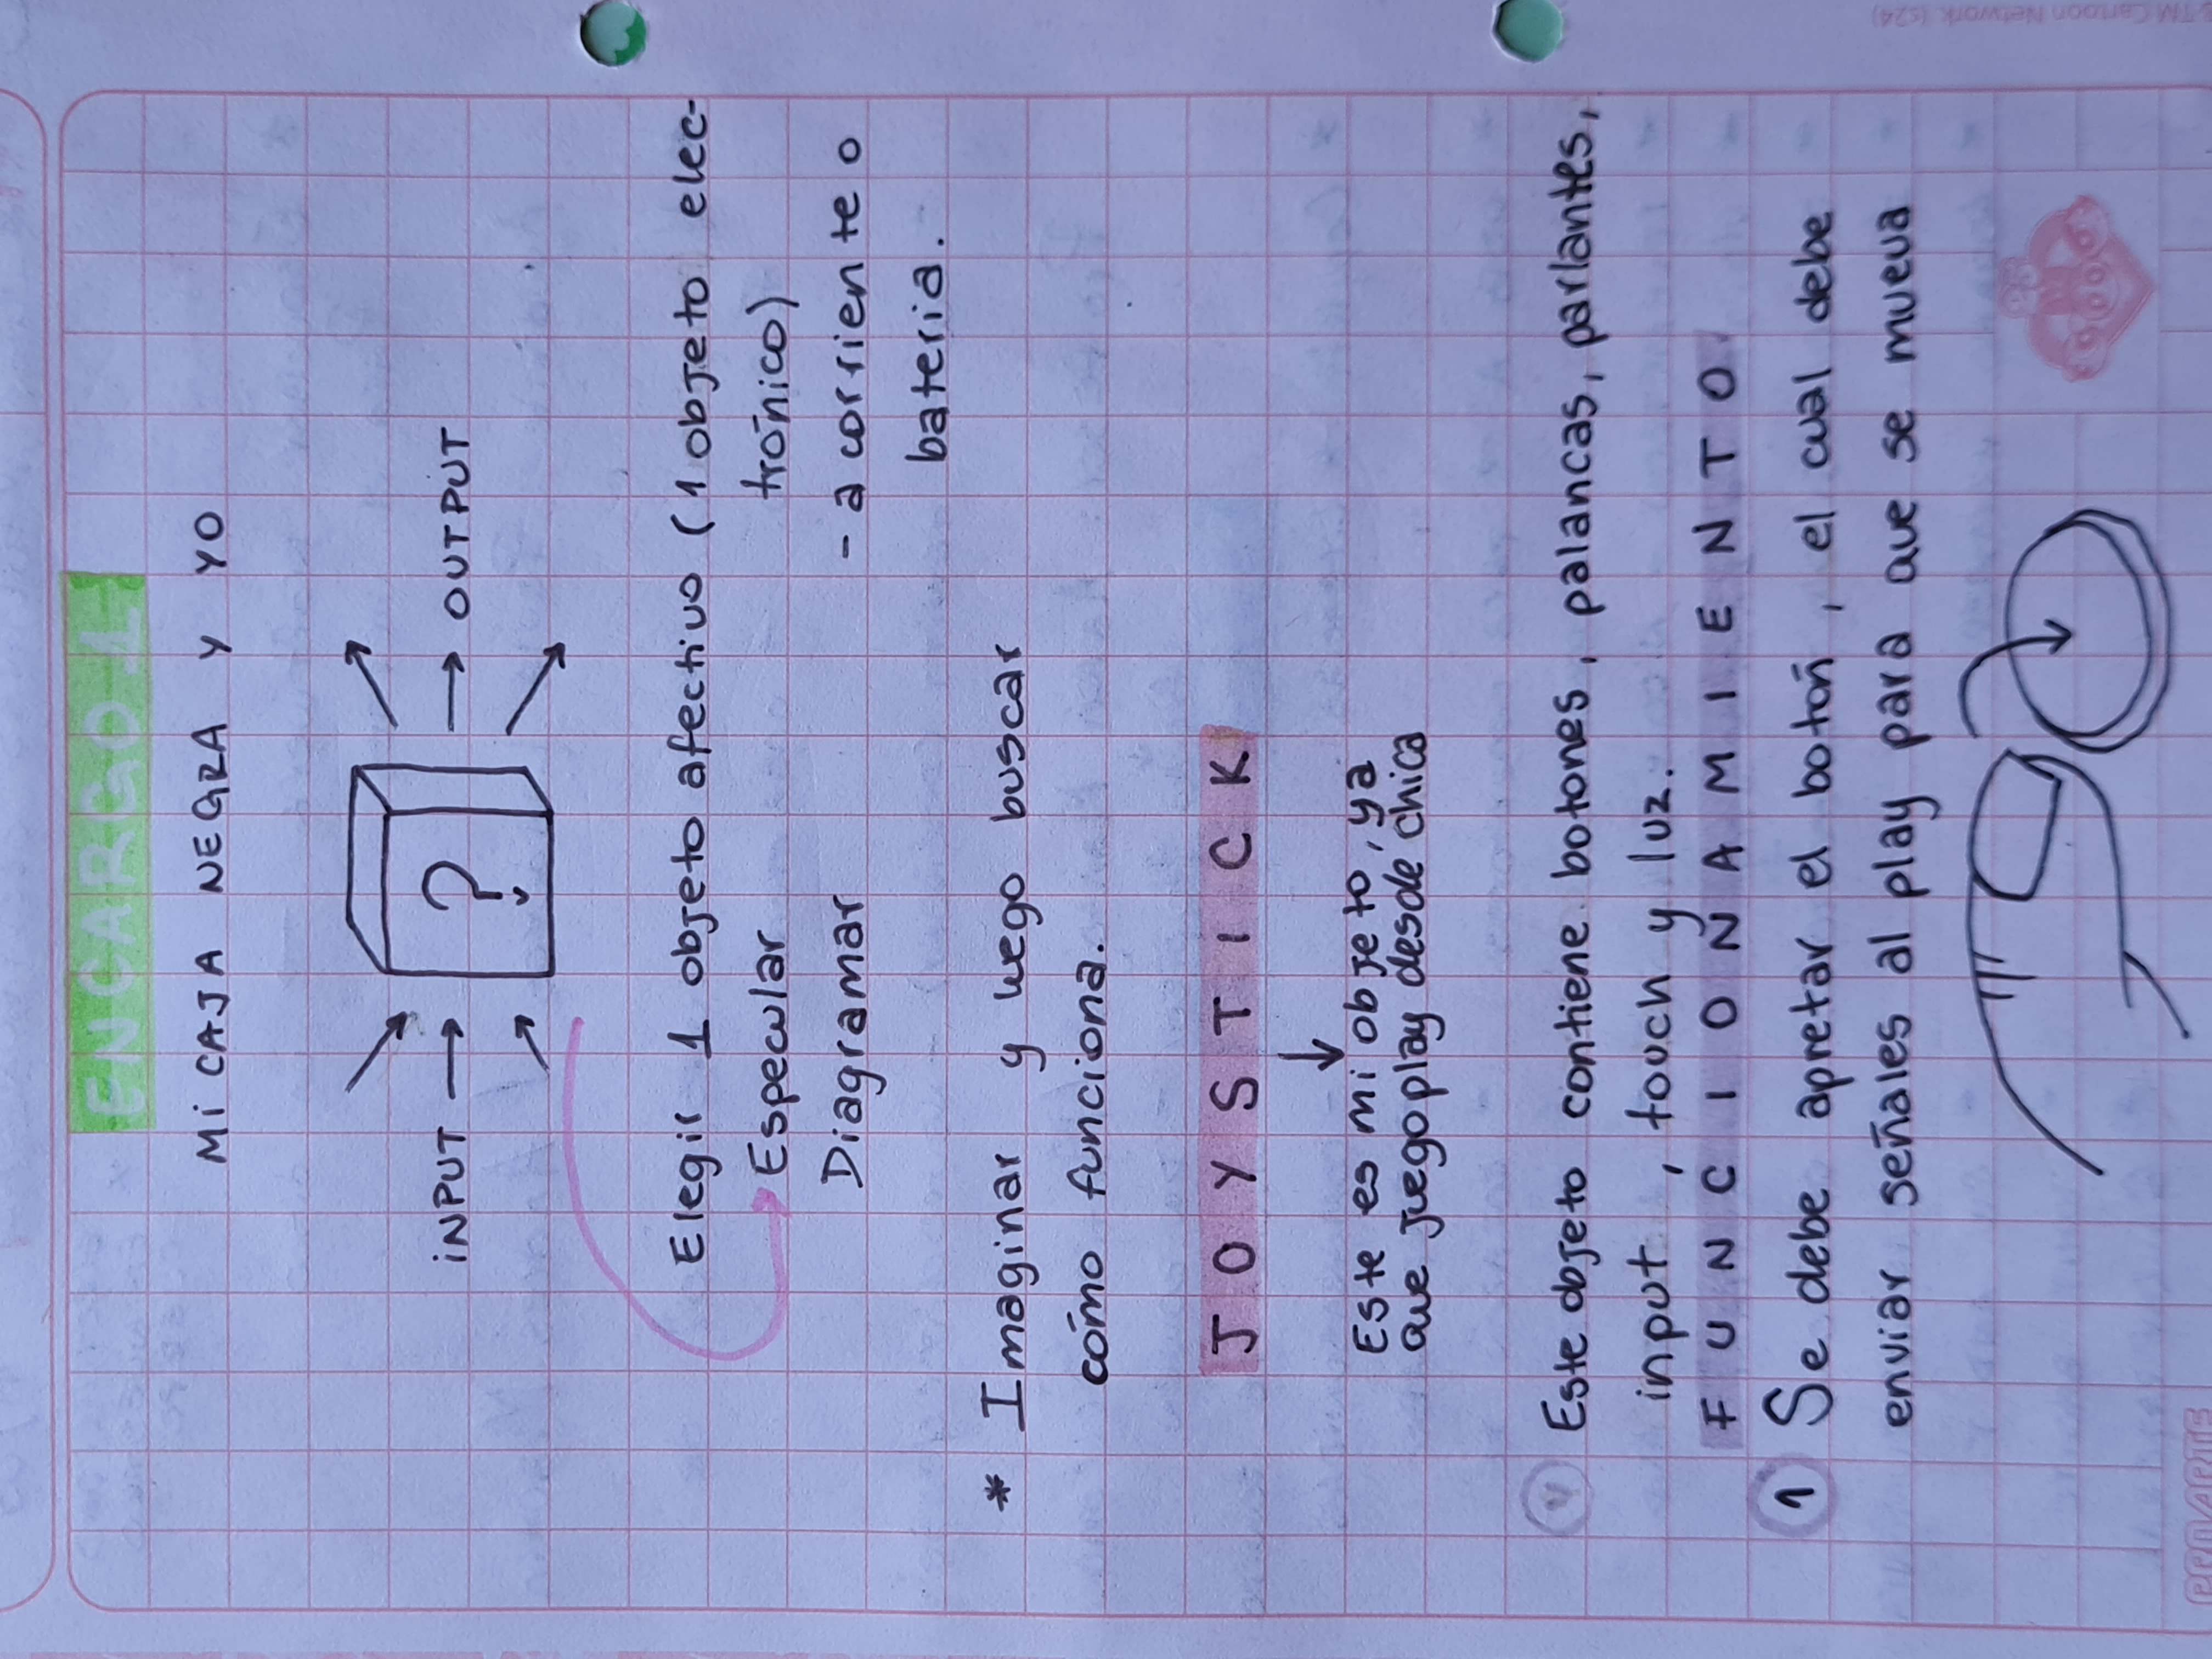 ENCARGO 1
Mi CAJA NEGRA Y YO
iNPUT
?
OUTPUT
Elegir 1 objeto afectivo (1 objeto elec-
Especular
trónico)
Diagramar
- a corriente o
bateria.
* Imaginar y luego buscar
cómo funciona.
JOYSTICK
Este es mi objeto, ya
que juego play desde chica
Este objeto contiene botones, palancas, parlantes,
input, touch y luz.
FUNCIONAMIENTO
1 Se debe apretar el botón, el cual debe
enviar señales al play para que se mueva
PROARTE
TM Cartoon Network (s24)